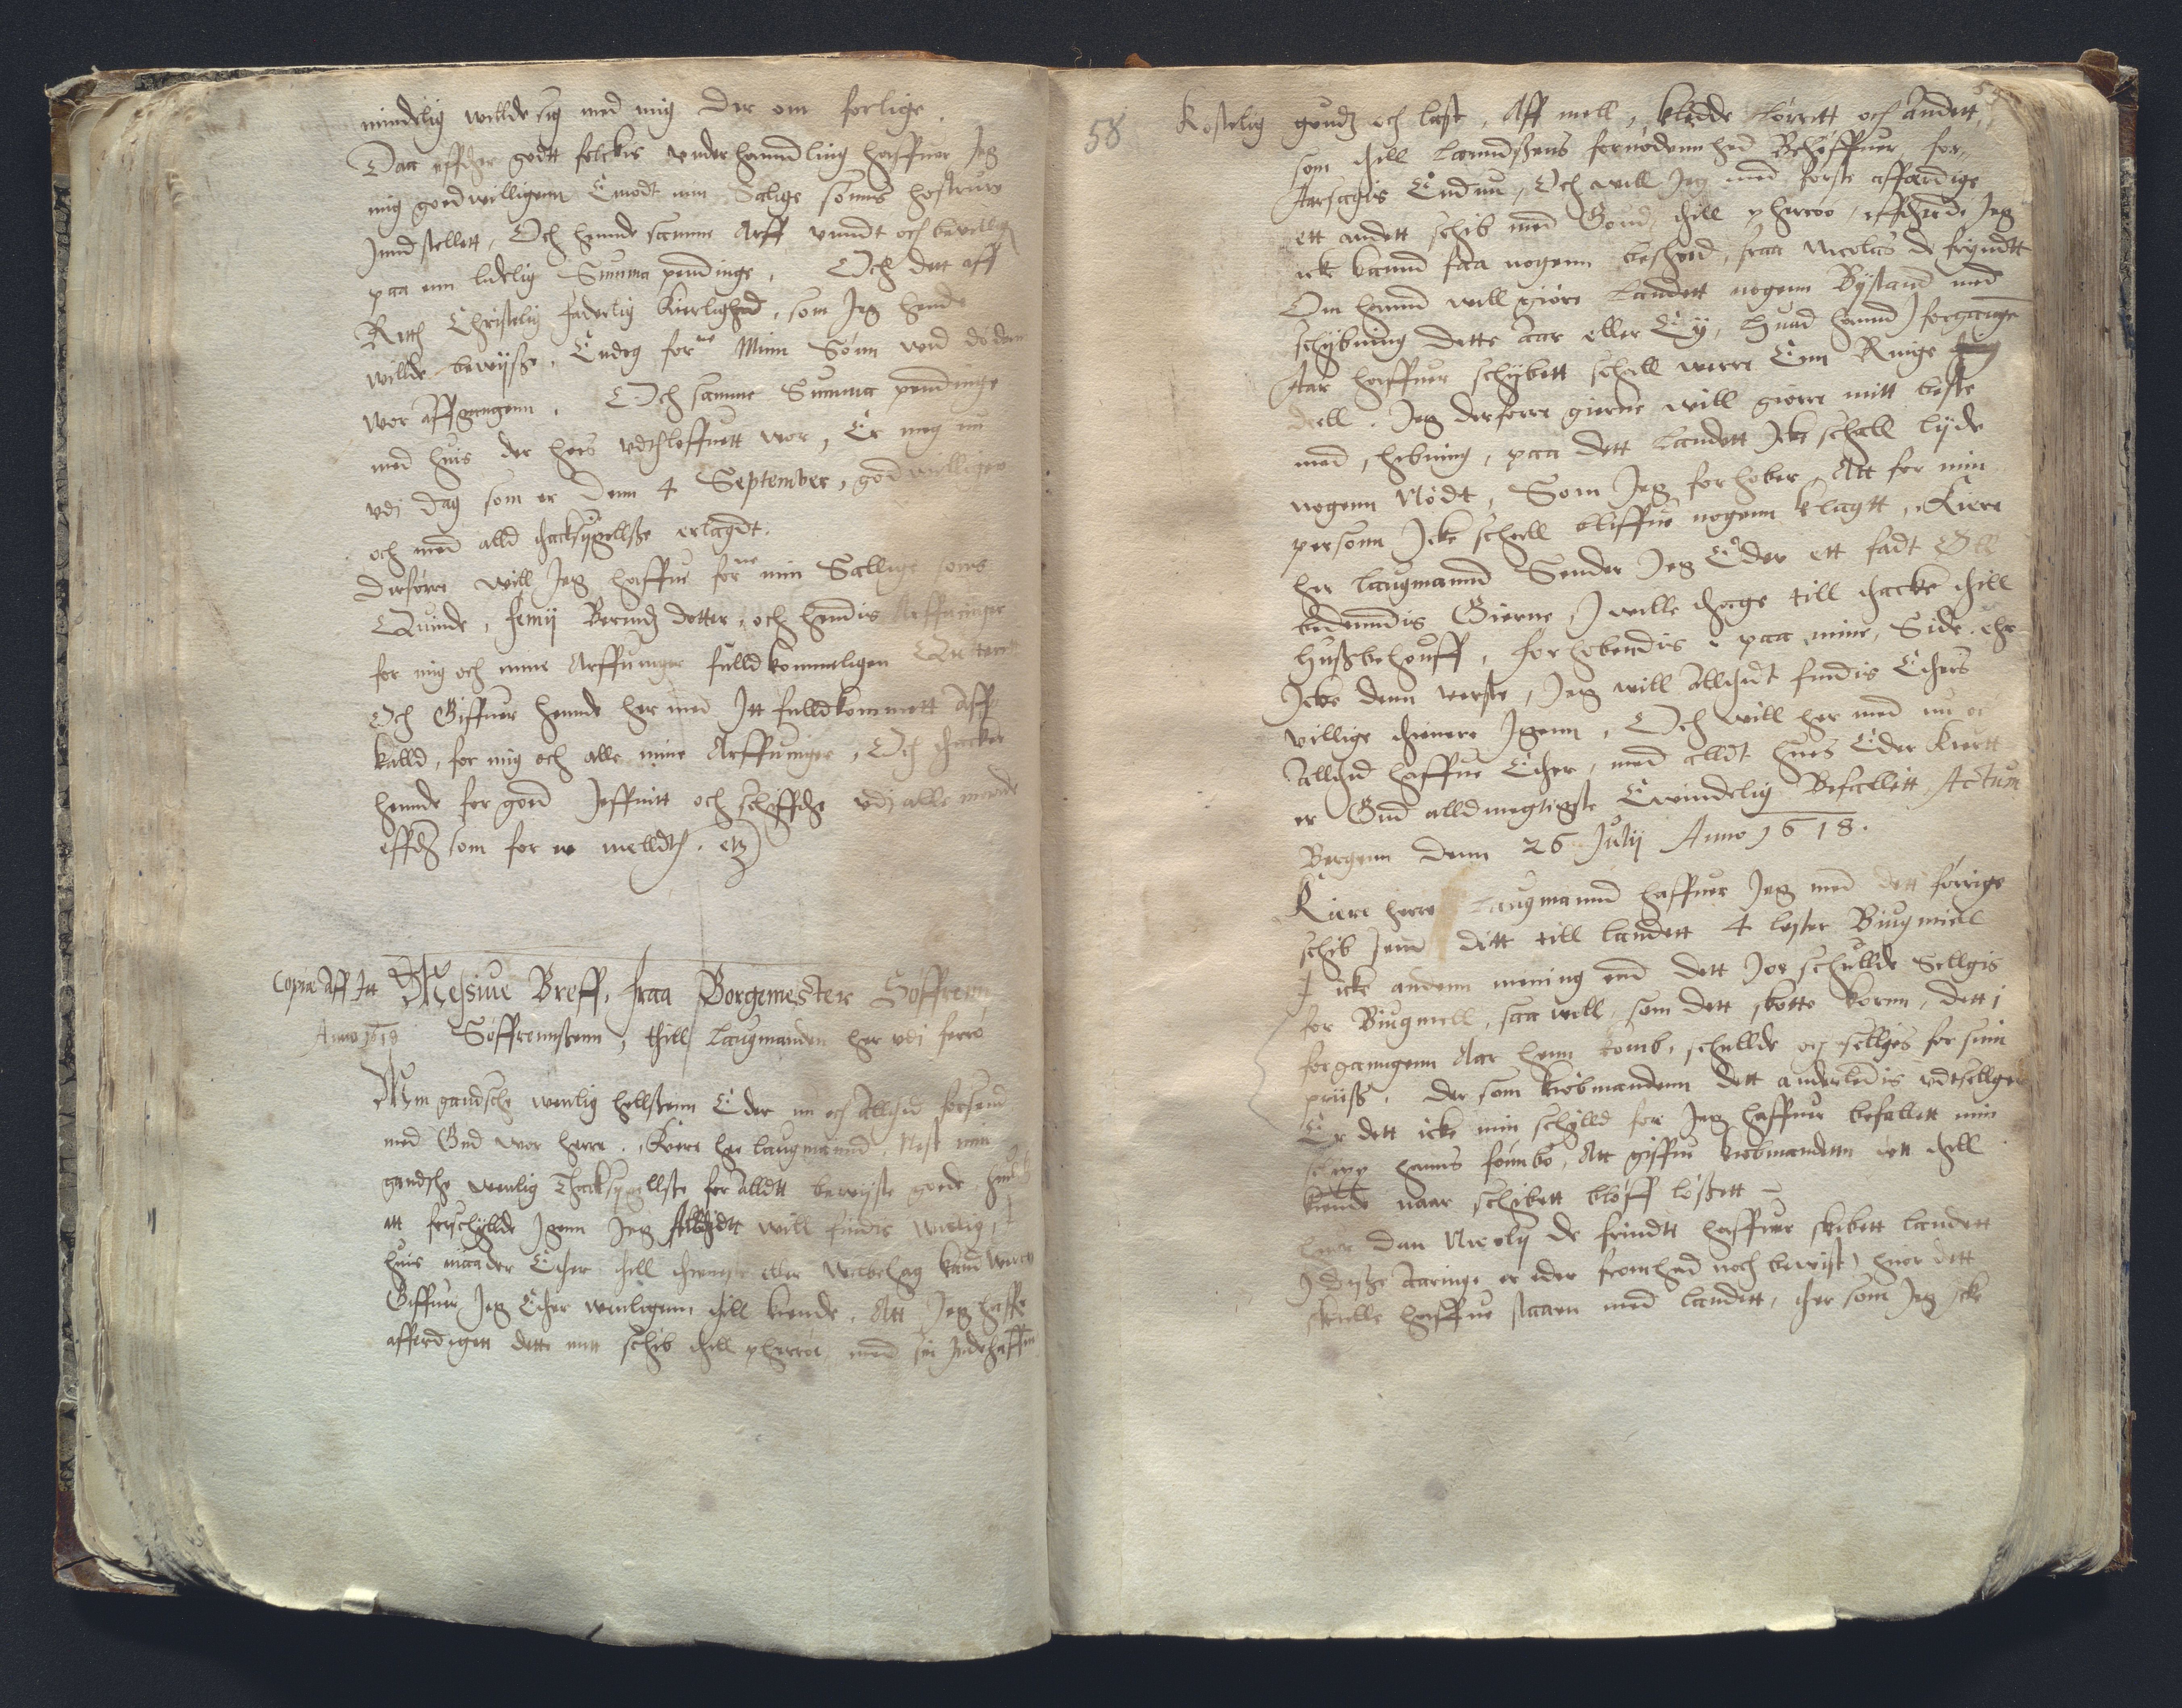 mindelig willde sig med mig der om forlige.
Daa effther godtt folckis vnderhanndling haffuer Jeg
mig goedwilligenn Emodt min Salige sønns høstrue
Jnnd stellett, Och hennde samme Arff vnndt och bevillig
paa enn lidelig Summa pendinge, Och dett aff
Rett Christelig faderlig Kierlighed, som Jeg hende
willde bewijsse, Endog forne Minn Sønn ved døden
wor affgangenn. Och samme Summa pendinge
med huis der hos vdthloffuett wor, Er meg nu
vdj dag som er denn 4 September, godwilligen
och med alld thacksigellsse erlagdt.
Derforre will Jeg haffue forne min Sallige søns
Quinde, femij Berendz dotter, och hendis Arffuinger
for mig och mine Arffuinger fulldkommeligen Quitteritt
Och Giffuer hennde her med Itt fulldkommett Aff
kalld, for mig och alle mine Arffuinger, Och thacker
hennde for goed Jeffnitt och schiffthe vdj alle maade
effther som for ne melldth. etc
Copia Aff Itt Mesiue Breff, fraa Borgemester Søffrenn
Anno 1618 Søffrennssenn, thill Laugmanden her vdi ferrø
Min gandsche wenlig hellssenn Eder nu och alltid forsend
med Gud wor herre. Kiere her laugmannd, Nest min
gandsche wenlig Thacksigellsse for alldtt bewijste goede, huilckit
att forschyllde Jgenn Jeg Altidtt will findis willig, I
huis maader Ether thill thienniste eller Velbehag kand were
Giffuer Jeg Ether wenligenn thill kiende, Att Jeg haffr
afferdigett dette mitt schib thill pherrøe, med sin Indehaffen
58 Kostelig goudz och last, Aff mell, kledde Lørrett och Andett,
som thill Landssens fornødennhed Behøffuer, for-
Aarsagis Endnu, Och will Jeg med første affærdige
ett andett schib med Goudz thill pherrøe, effterdi Jeg
icke kannd faa nogenn besked, fraa Nicolas de fryndtt
Om hannd will giøre Landett nogenn Bystand med
schijbning dette aar eller Ey, Huad hannd I forgangen
Aar haffuer schijbett schall werre Enn Ringe
deell. Jeg derforre gierne will giøre mitt beste
med schibning, paa dett Landett Icke schall lijde
nogenn Nødt, Som Jeg forhober, Att for min
personn Icke schall bliffue nogenn klagtt, Kiere
her laugmannd Sender Jeg Eder ett fadt Øll
bedenndis Gierne, I wille thage till thacke thill
Hussbehouff, forhobendis paa mine Side, ehr
Icke denn verste, Jeg will Alltidt findis Ethers
villige thienere Jgenn, Och will her med nu oc
Alltid haffue Ether, med alldt huis Eder Kiertt
er Gud alldmegtigste Ewindelig Befallitt Actum
Bergenn denn 26 Julij Anno 1618.
Kiere herre Laugmannd haffuer Jeg med dett forrige
schib send ditt till landett 4 lester Biugmiell
I icke andenn mening end dett Joe schullde Sellgis
for Biugmell, saa well, som dett skotte kornn, dett i
forganngenn Aar henn komb, schullde och sellgis for sinn
prijss. der som kiøbmandenn dett anderledis vdtsellger
Er dett icke min schylld for Jeg haffuer befallett min
hanns founbo, Att giffue kiøbmanden dett thill
kiende naar schibett bløff løssett
huor dan Nicolij de frindtt haffuer skibett landett
I disse aaringe er eder fromhed noch bevist, huor dett
skulle haffue staaen med landett, ther som Jeg icke